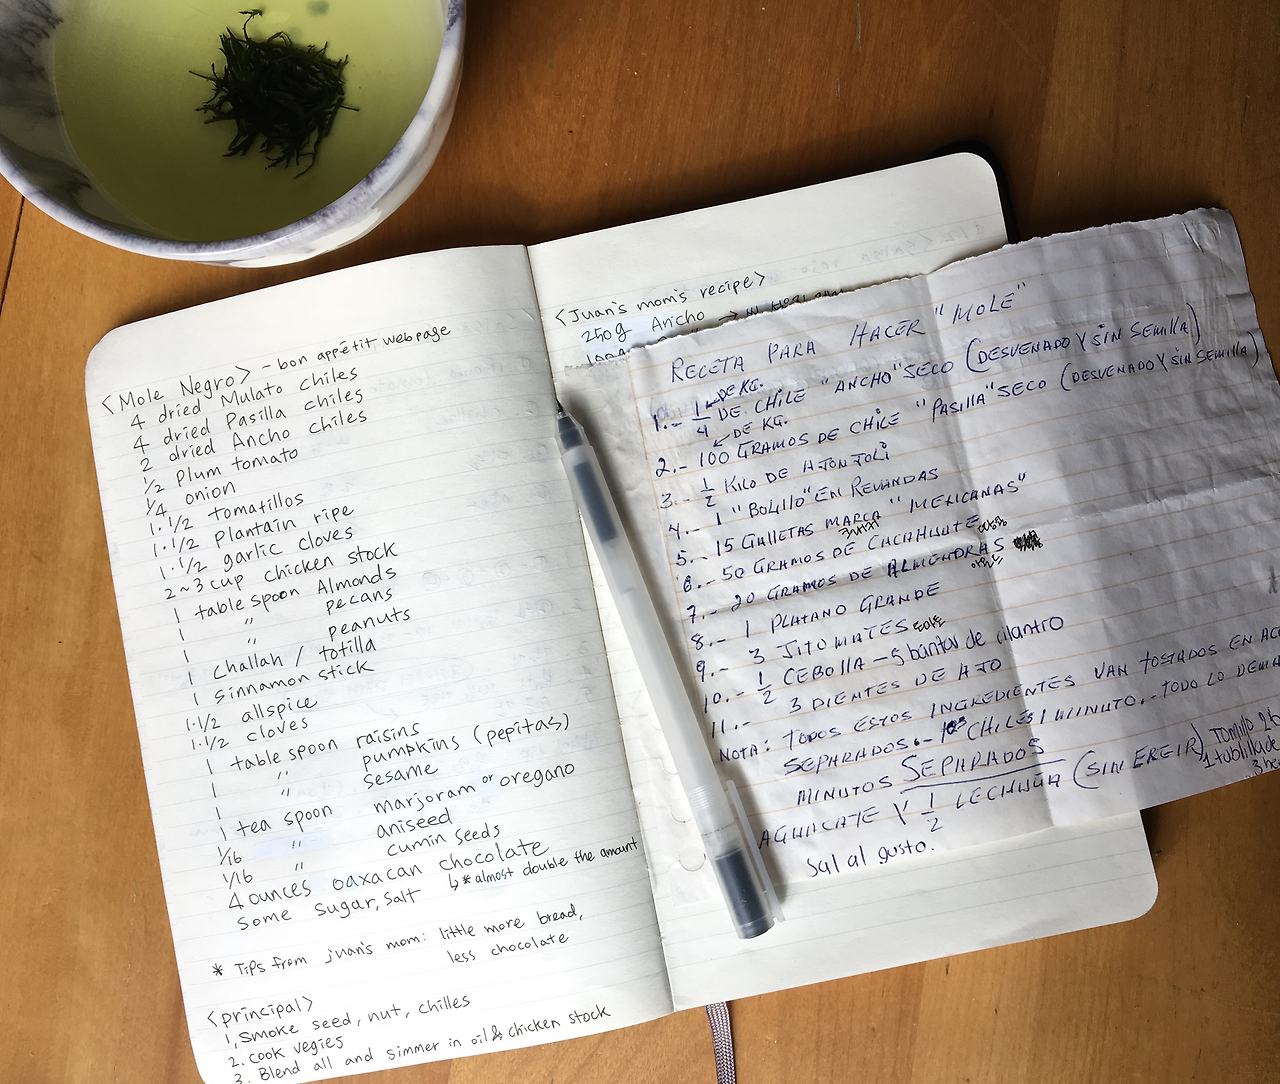 <Mole Negro> - bon appétit webpage
4 dried Mulato chiles
4 dried Pasilla chiles
2 dried Ancho chiles
1/2 plum tomato
1/4 onion
1·1/2 tomatillos
1·1/2 plantain ripe
1·1/2 garlic cloves
2~3 cup chicken stock
1 table spoon Almonds
1 〃 pecans
1 〃 peanuts
1 challah / totilla
1 sinnamon stick
1·1/2 allspice
1·1/2 cloves
1 table spoon raisins
1 〃 pumpkins (pepitas)
1 〃 sesame
1 tea spoon marjoram or oregano
1/16 〃 aniseed
1/16 〃 cumin seeds
4 ounces oaxacan chocolate
↳ * almost double the amount
some sugar, salt
* Tips from juan's mom: little more bread,
less chocolate
<principal>
1, smoke seed, nut, chilles
2. cook vegies
3. Blend all and simmer in oil & chicken stock
<Juan's mom's recipe>
250g Ancho →
RECETA PARA HACER "MOLE"
1.- 1/4 DE KG. DE CHILE "ANCHO" SECO (DESVENADO Y SIN SEMILLA)
2.- 100 GRAMOS DE CHILE "PASILLA" SECO (DESVENADO Y SIN SEMILLA)
DE KG.
3.- 1/2 KILO DE AJONJOLI
4.- 1 "BOLILLO" EN REVANDAS
5.- 15 GALLETAS MARCA "MEXICANAS"
6.- 50 GRAMOS DE CACAHUATE
7.- 20 GRAMOS DE ALMENDRAS
아몬드
8.- 1 PLATANO GRANDE
9.- 3 JITOMATES 토마토
10.- 1/2 CEBOLLA - 5 de cilantro
11.- 3 DIENTES DE AJO
NOTA: TODOS ESTOS INGREDIENTES VAN TOSTADOS EN
SEPARADOS.- CHILES 1 MINUTO.- TODO LO
MINUTOS SEPARADOS
AGUACATE Y 1/2 LECHUGA (SIN FREIR) Tomillo
sal al gusto.